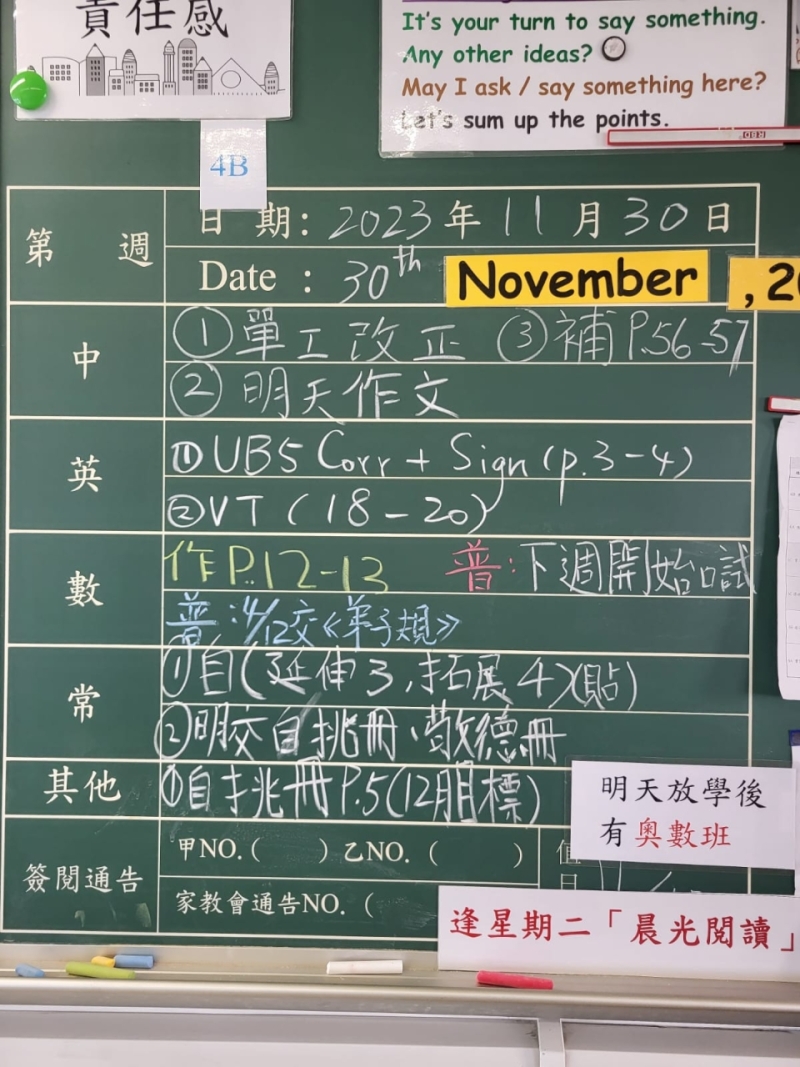 責任感
It's your turn to say something.
Any other ideas?
May I ask / say something here?
Let's sum up the points.
4B
第 週
日 期: 2023 年 11 月 30 日
Date : 30th November , 20
中
① 單工改正 ③ 補 P.56-57
② 明天作文
英
① UB5 Corr + Sign (p.3-4)
② VT (18-20)
數
作 P.12-13 普:下週開始口試
普:4/12交《弟子規》
常
① 自(延伸3,拓展4)(貼)
② 明交自挑冊、敬德冊
其他
① 自挑冊 P.5 (12月目標)
明天放學後
有奧數班
簽閱通告
甲NO.( ) 乙NO. ( ) 值日
家教會通告NO. (
逢星期二「晨光閱讀」